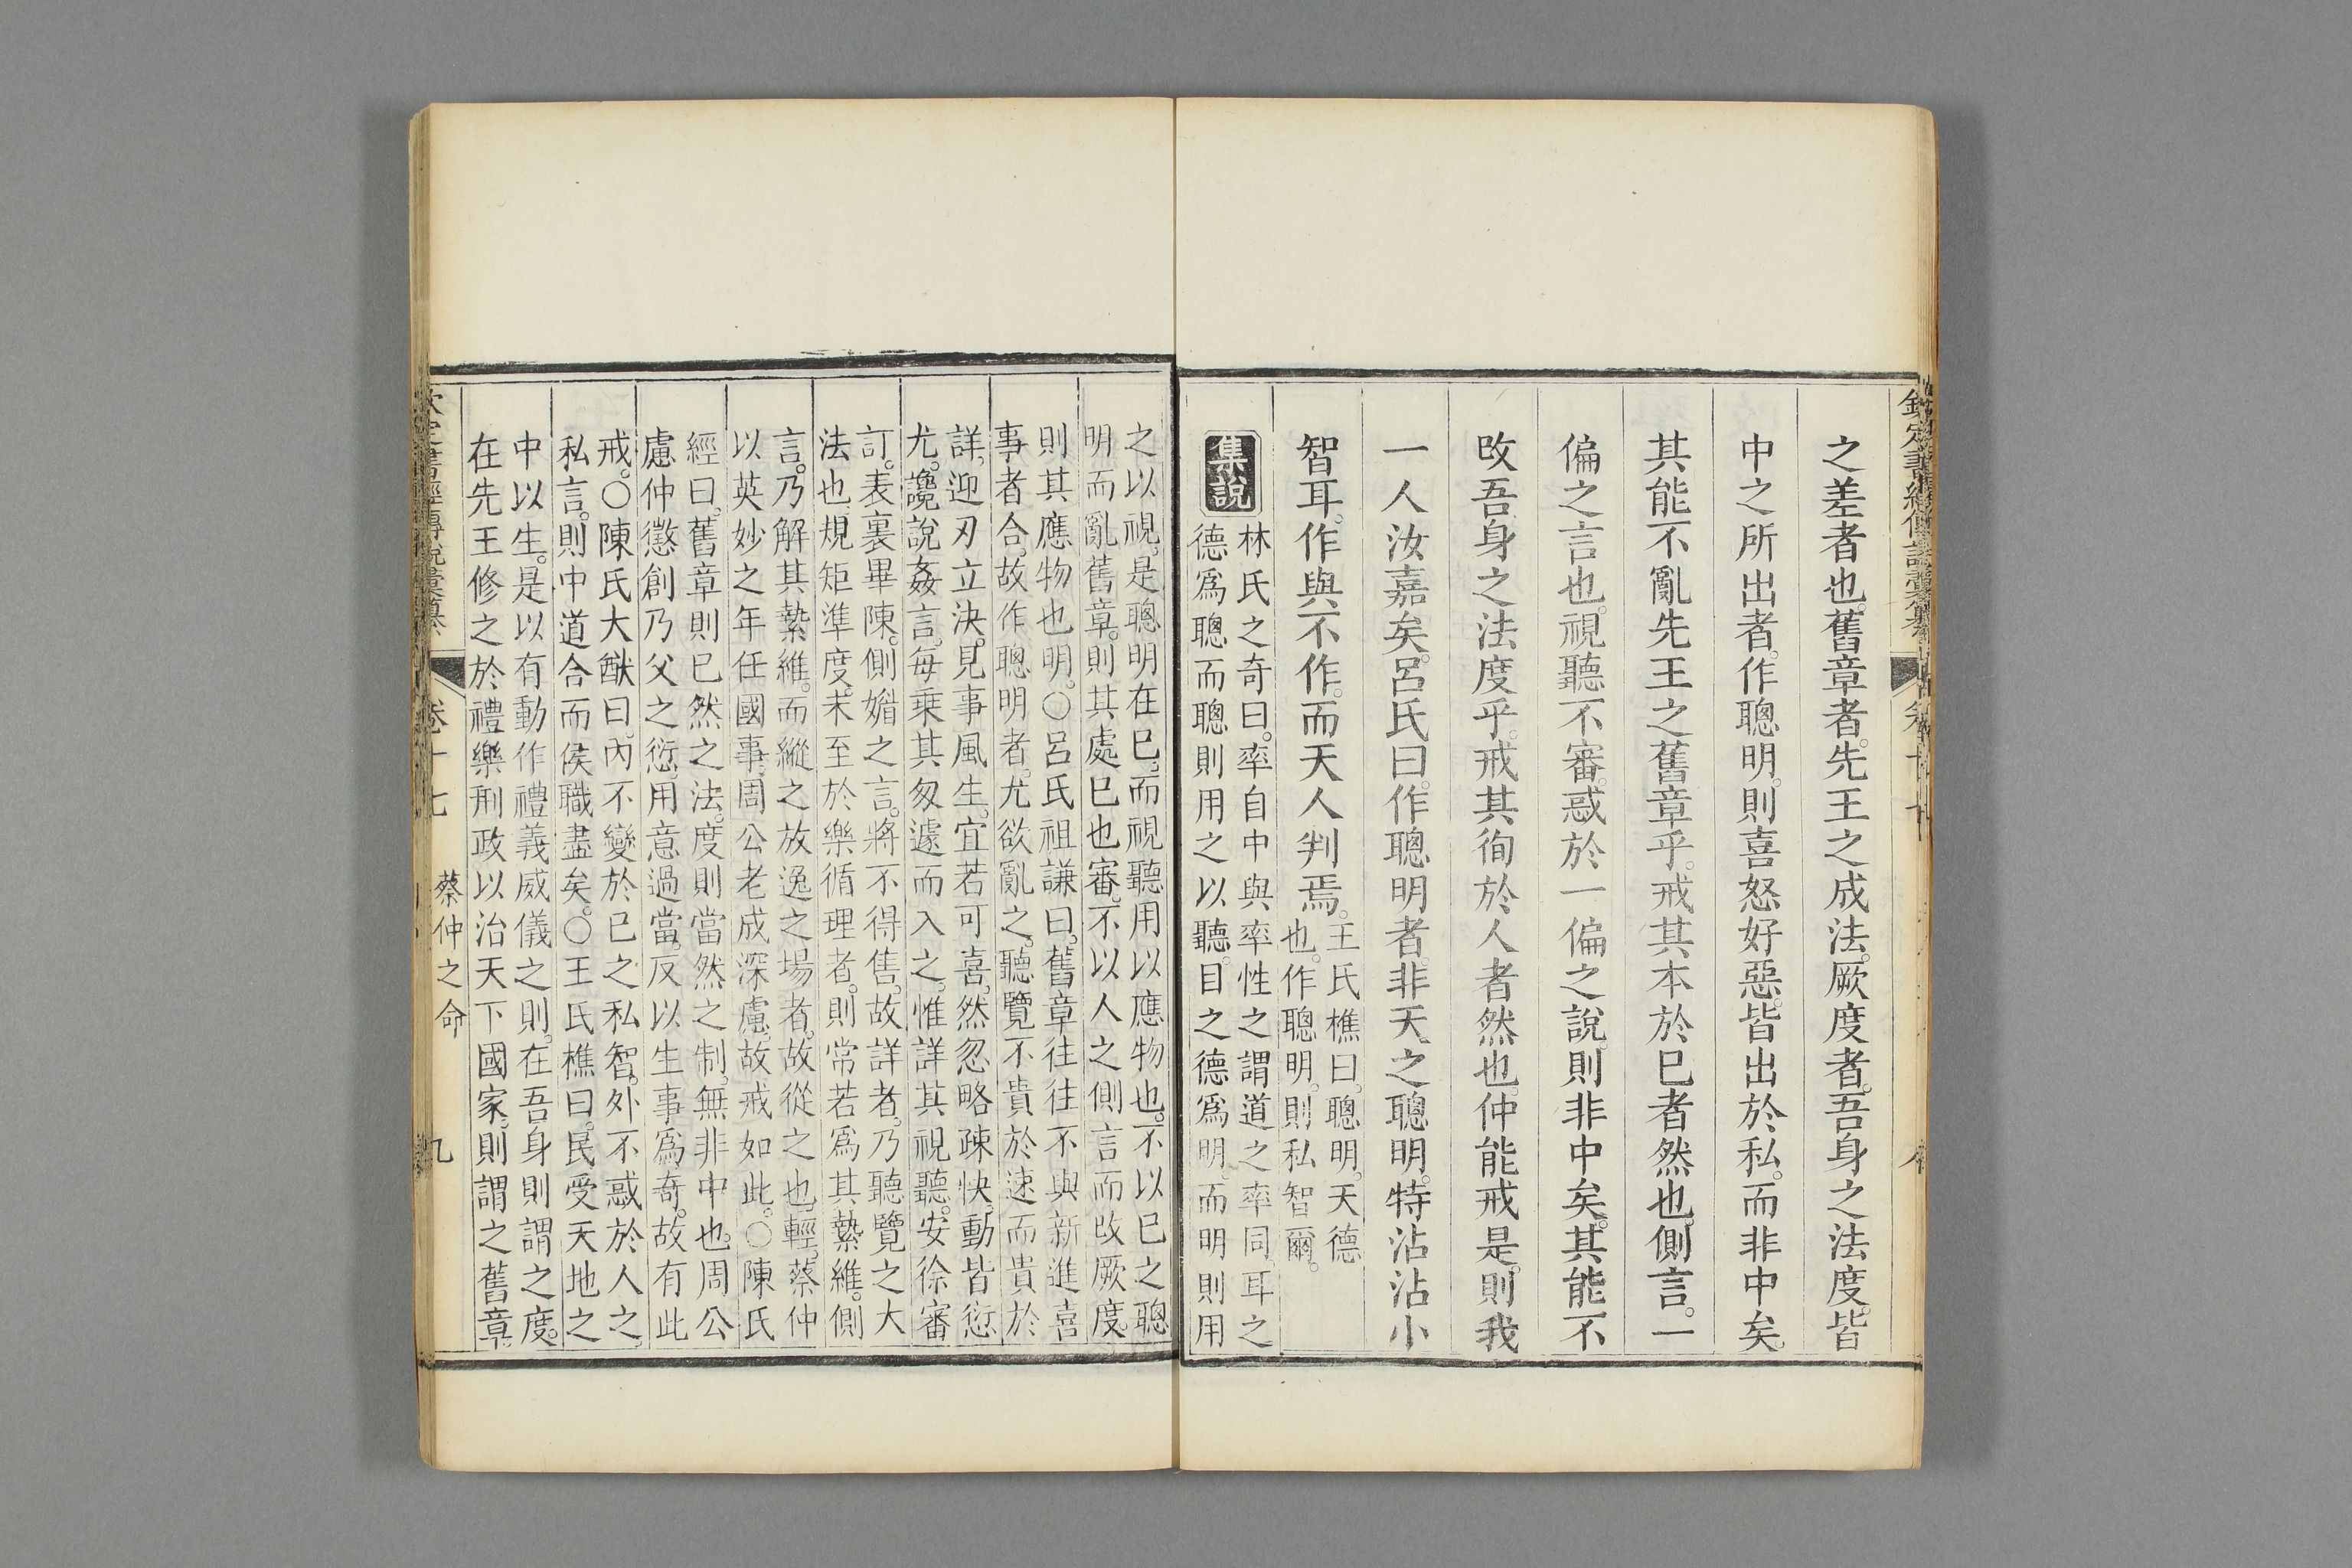 欽定書經傳說彙纂
之差者也。舊章者。先王之成法。厥度者。吾身之法度。皆
中之所出者。作聰明。則喜怒好惡。皆出於私。而非中矣。
其能不亂先王之舊章乎。戒其本於已者然也。側言。一
偏之言也。視聽不審。惑於一偏之說。則非中矣。其能不
攺吾身之法度乎。戒其徇於人者然也。仲能戒是。則我
一人汝嘉矣。呂氏曰。作聰明者。非天之聰明。特沾沾小
智耳。作與不作。而天人判焉。王氏樵曰。聰明。天德
也。作聰明。則私智爾。
集說
林氏之奇曰。率自中與率性之謂道之率同。耳之
德爲聰而聰則用之以聽。目之德爲明。而明則用
之以視。是聰明在已。而視聽用以應物也。不以已之聰
明而亂舊章。則其處已也審。不以人之側言而攺厥度。
則其應物也明。○呂氏祖謙曰。舊章往往不與新進喜
事者合。故作聰明者。尤欲亂之。聽覽不貴於速而貴於
詳。迎刃立決。見事風生。宜若可喜。然忽略疎快。動皆愆
尤。讒說姦言。每乗其匆遽而入之。惟詳其視聽。安徐審
訂。表裏畢陳。側媚之言。將不得售。故詳者。乃聽覽之大
法也。規矩準度。未至於樂循理者。則常若爲其縶維。側
言。乃解其縶維。而縱之放逸之場者。故從之也輕。蔡仲
以英妙之年任國事。周公老成深慮。故戒如此。○陳氏
經曰。舊章則已然之法。度則當然之制。無非中也。周公
慮仲懲創乃父之愆。用意過當。反以生事爲奇。故有此
戒。○陳氏大猷曰。內不變於已之私智。外不惑於人之
私言。則中道合而侯職盡矣。○王氏樵曰。民受天地之
中以生。是以有動作禮義威儀之則。在吾身則謂之度。
在先王修之於禮樂刑政以治天下國家。則謂之舊章。
欽定書經傳說彙纂
卷十七
蔡仲之命
九